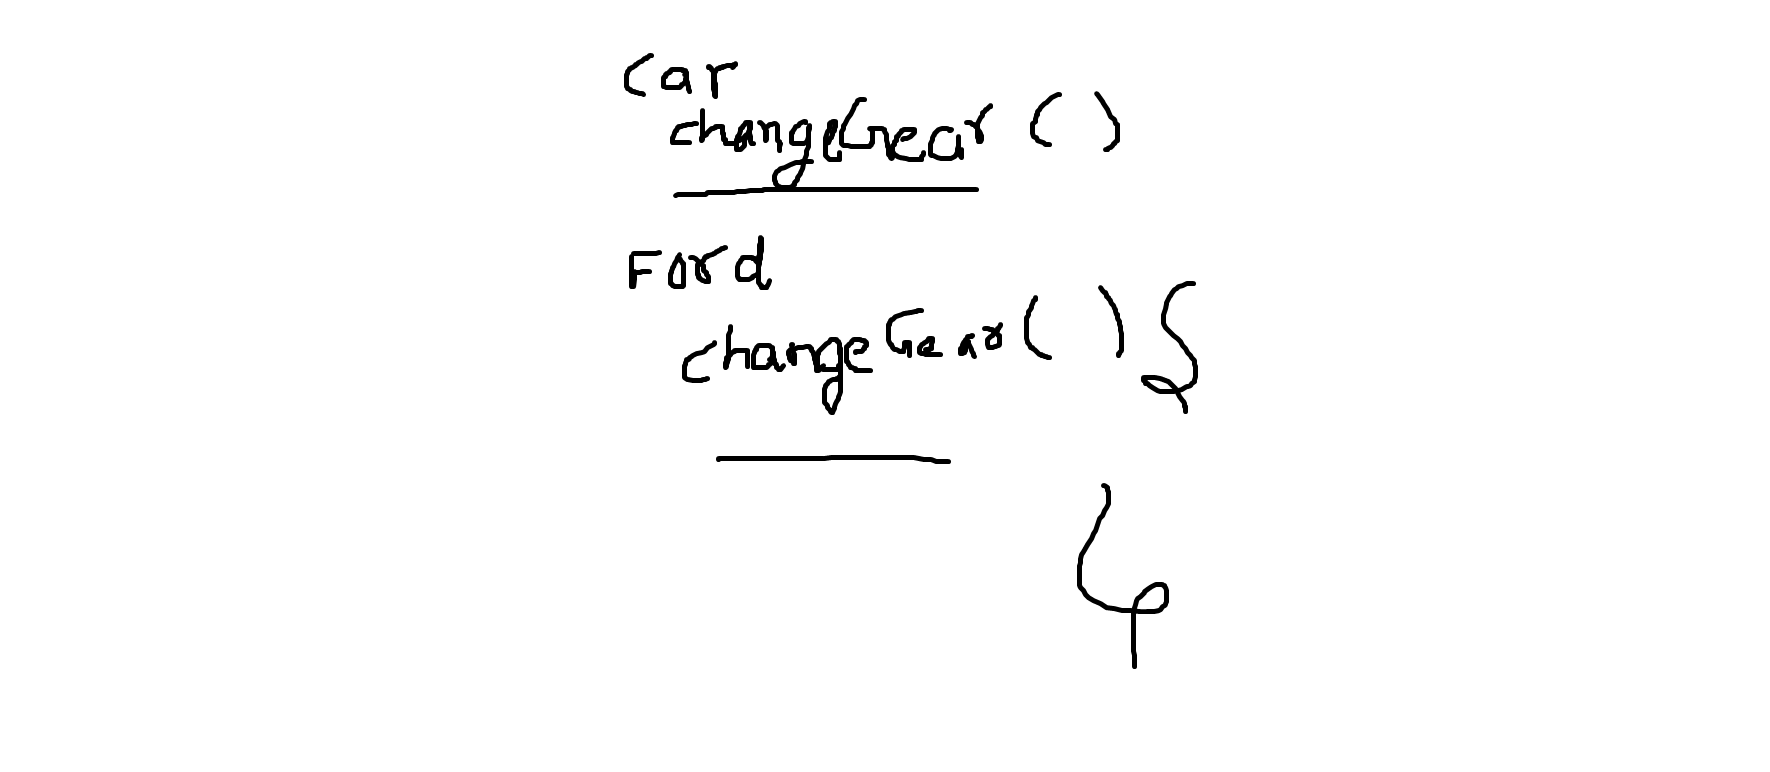 Car
changeGear ( )
Ford
changeGear ( ) {
}